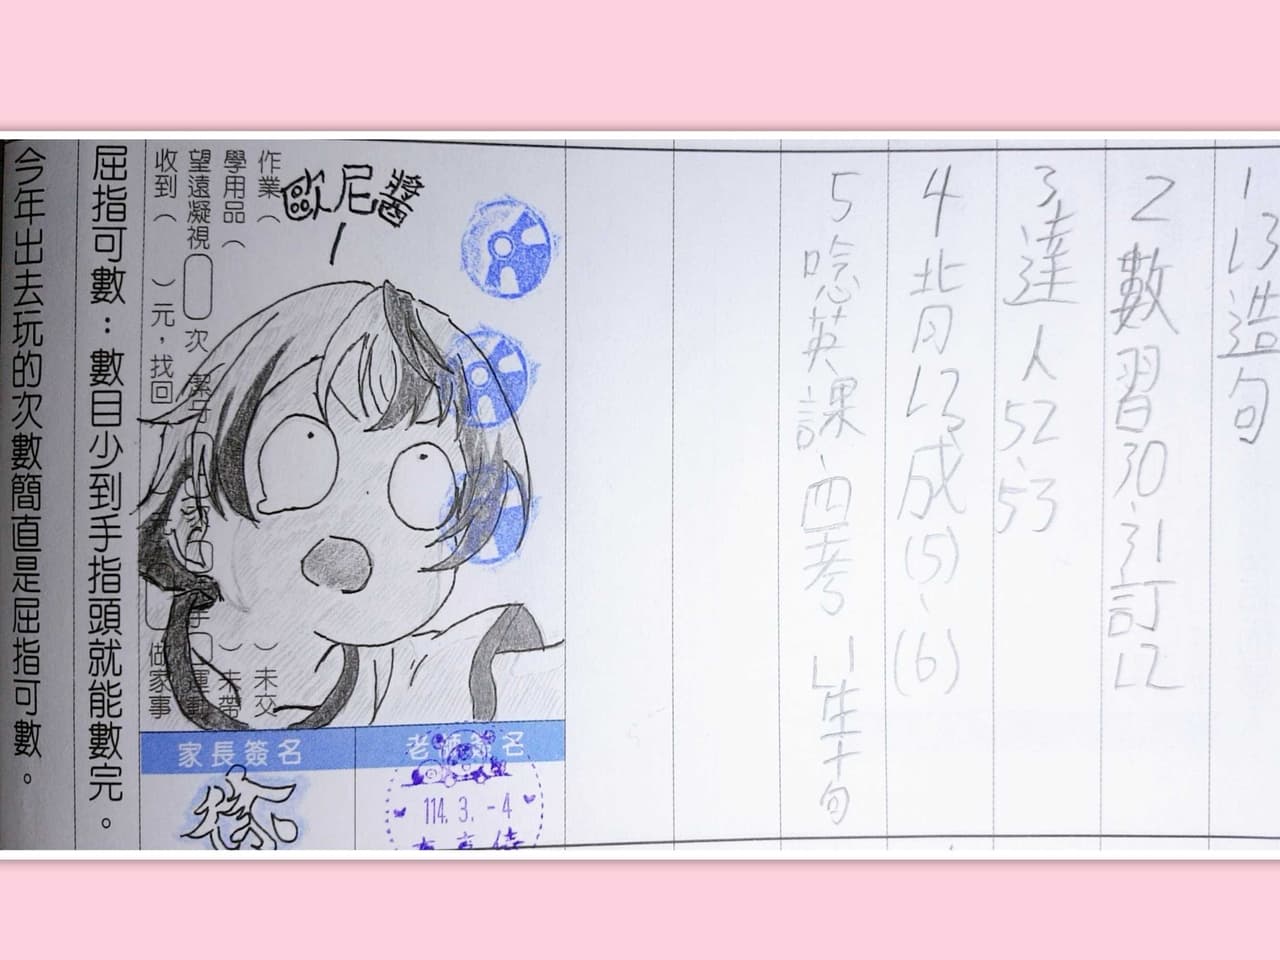 1 L3造句
2 數習30、31訂12
3、達人52、53
4 背L3成(5)、(6)
5 唸英課、四考 L1生十句
歐尼醬
作業(　)未交
學用品(　)未帶
望遠凝視　次
收到(　)元,找回
做家事
家長簽名
老師簽名
徐
114. 3. -4
屈指可數:數目少到手指頭就能數完。
今年出去玩的次數簡直是屈指可數。